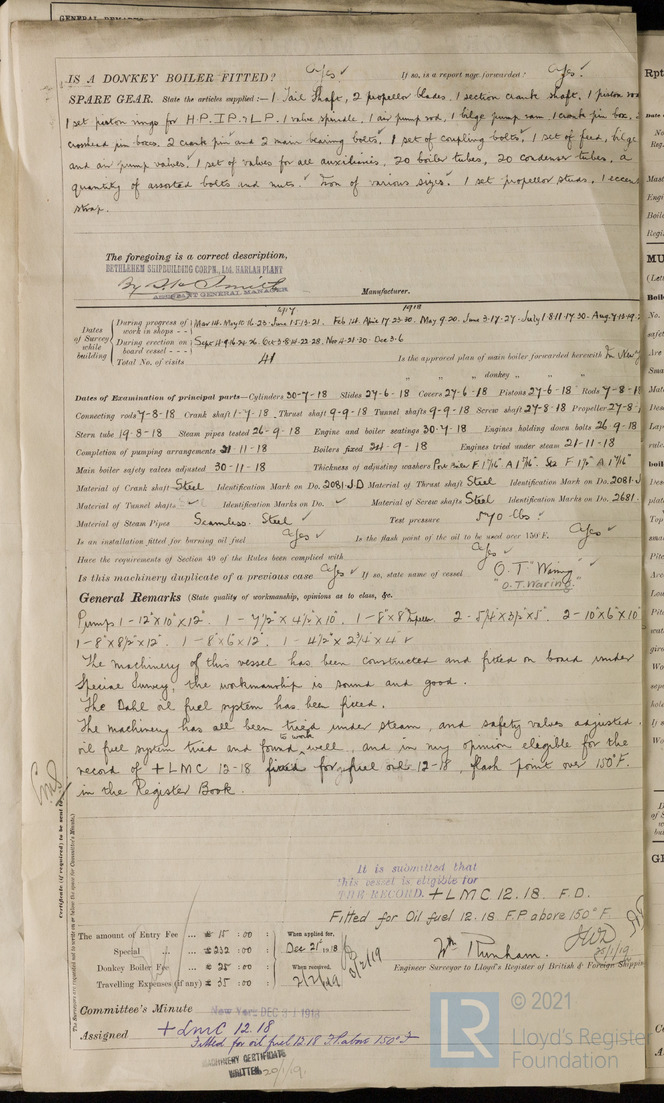 IS A DONKEY BOILER FITTED? Yes ✓ If so, is a report now forwarded? Yes ✓
SPARE GEAR. State the articles supplied:— 1 Tail Shaft, 2 propellor blades. 1 section crank shaft. 1 piston rod
1 set piston rings for H.P. I.P. & L.P. 1 valve spindle. 1 air pump rod, 1 bilge pump ram 1 crank pin box. 2
crosshead pin boxes. 2 crank pin and 2 main bearing bolts. 1 set of coupling bolts. 1 set of feed, bilge
and air pump valves. 1 set of valves for all auxiliaries, 20 boiler tubes, 20 condenser tubes, a
quantity of assorted bolts and nuts. Iron of various sizes. 1 set propellor studs, 1 eccen
strap.
The foregoing is a correct description,
BETHLEHEM SHIPBUILDING CORPN., Ltd. HARLAN PLANT
By Smith
ASSISTANT GENERAL MANAGER
Manufacturer.
1917 1918
Dates of Survey while building
During progress of work in shops - - Mar 14. May 10. 16. 23. June 1. 5. 13. 21. Feb 14. April 17. 23. 30. May 9. 20. June 3. 17. 27. July 1. 8. 11. 17. 30. Aug. 7. 13. 19.
During erection on board vessel - - - Sept 4. 9. 16. 24. 26. Oct 3. 8. 14. 22. 28. Nov 4. 21. 30. Dec 3. 6
Total No. of visits 41 Is the approved plan of main boiler forwarded herewith In New Y
" " " donkey " " "
Dates of Examination of principal parts—Cylinders 30-7-18 Slides 27-6-18 Covers 27-6-18 Pistons 27-6-18 Rods 7-8-18
Connecting rods 7-8-18 Crank shaft 1-7-18 Thrust shaft 9-9-18 Tunnel shafts 9-9-18 Screw shaft 27-8-18 Propeller 27-8-1
Stern tube 19-8-18 Steam pipes tested 26-9-18 Engine and boiler seatings 30-7-18 Engines holding down bolts 26-9-18
Completion of pumping arrangements 21-11-18 Boilers fixed 24-9-18 Engines tried under steam 21-11-18
Main boiler safety valves adjusted 30-11-18 Thickness of adjusting washers Port boiler F 1 7/16" A 1 7/16"
Material of Crank shaft Steel Identification Mark on Do. 2081 J.D Material of Thrust shaft Steel Identification Mark on Do. 2081 J
Material of Tunnel shafts ✓ Identification Marks on Do. ✓ Material of Screw shafts Steel Identification Marks on Do. 2681
Material of Steam Pipes Seamless Steel ✓ Test pressure 570 lbs. ✓
Is an installation fitted for burning oil fuel Yes ✓ Is the flash point of the oil to be used over 150°F. Yes ✓
Have the requirements of Section 49 of the Rules been complied with Yes ✓
Is this machinery duplicate of a previous case Yes ✓ If so, state name of vessel O.T "Waring" ✓
"O.T. Waring."
General Remarks (State quality of workmanship, opinions as to class, &c.
Pumps 1-12"x10"x12". 1-7½"x4½"x10". 1-8"x8" 2-5¼"x3½"x5". 2-10"x6"x10"
1-8"x8½"x12". 1-8"x6"x12". 1-4½"x2¾"x4" ✓
The machinery of this vessel has been constructed and fitted on board under
Special Survey, the workmanship is sound and good.
The Dahl oil fuel system has been fitted.
The machinery has all been tried under steam, and safety valves adjusted.
oil fuel system tried and found to work well, and in my opinion elegible for the
record of +LMC 12-18 fitted for fuel oil 12-18, flash point over 150°F.
in the Register Book.
Certificate (if required) to be sent to
(The Surveyors are requested not to write on or below the space for Committee's Minute.)
It is submitted that
this vessel is eligible for
THE RECORD. +LMC 12.18. F.D.
Fitted for Oil fuel 12.18 F.P above 150°F.
The amount of Entry Fee ... £ 15 : 00 :
Special ... £ 232 : 00 :
Donkey Boiler Fee ... £ 25 : 00 :
Travelling Expenses (if any) £ 35 : 00 :
When applied for, Dec 21st 1918
When received, 7/2/19
8/2/19
Wm Runham.
25/1/19
Engineer Surveyor to Lloyd's Register of British & Foreign Shipping
Committee's Minute New York DEC 31 1918
Assigned +LMC 12 18
Fitted for oil fuel 12.18 F.P above 150°F
MACHINERY CERTIFICATE
WRITTEN 20/1/19.
© 2021
Lloyd's Register
Foundation
LR